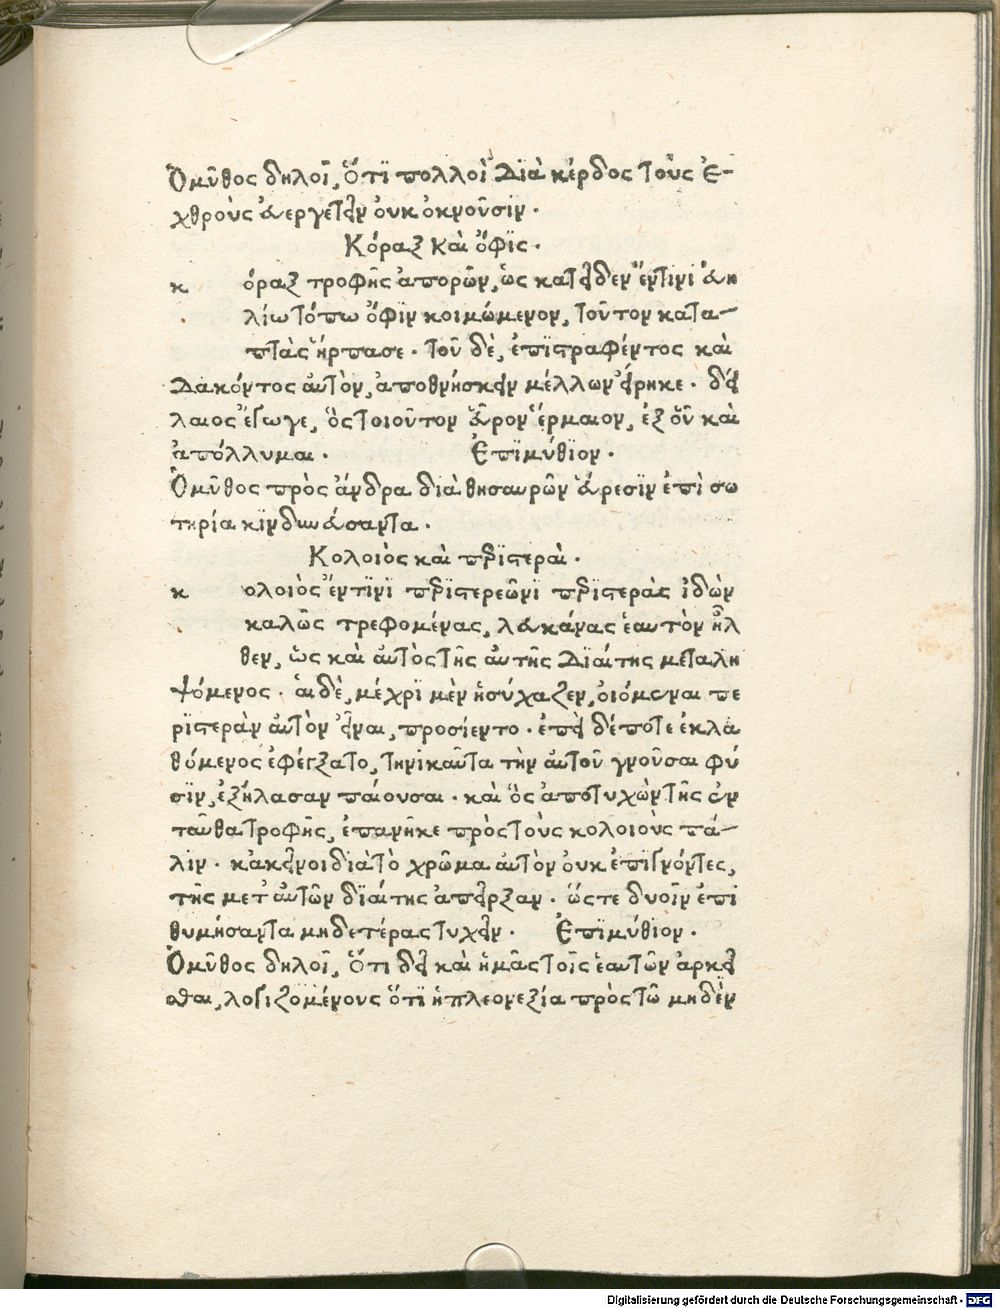 Ὁ μῦθος δηλοῖ, ὅτι πολλοὶ διὰ κέρδος τοὺς ἐ-
χθροὺς ἐυεργετεῖν ὀυκ ὀκνοῦσιν.
Κόραξ καὶ ὄφϊς.
κ όραξ τροφῆς ἀπορῶν, ὡς κατεῖδεν ἔν τινι ἐυη
λίω τόπω ὄφιν κοιμώμενον, τοῦτον κατα-
πτὰς ἥρπασε. τοῦ δὲ, ἐπιστραφέντος καὶ
Δακόντος ἀυτὸν, ἀποθνήσκειν μέλλων ἔιρηκε. δεί
λαιος ἔγωγε, ὃς τοιοῦτον ἧυρον ἕρμαιον, ἐξ οὗ καὶ
ἀπόλλυμαι. Ἐπιμύθιον.
Ὁ μῦθος πρὸς ἄνδρα διὰ θησαυρῶν ἕυρεσιν ἐπὶ σω
τηρία κινδυνεύσαντα.
Κολοιὸς καὶ περιστεραὶ.
κ ολοιὸς ἔν τινι περιστερεῶνι περιστερὰς ἰδὼν
καλῶς τρεφομένας, λευκάνας ἑαυτὸν ἦλ
θεν, ὡς καὶ ἀυτὸς τῆς ἀυτῆς Διάιτης μεταλη
ψόμενος. ἁι δὲ, μέχρι μὲν ἡσύχαζεν, ὀιόμεναι πε
ριστερὰν ἀυτὸν εἶναι, προσίεντο. ἐπεὶ δέ ποτε ἐκλα
θόμενος ἐφέγξατο, τηνικαῦτα τὴν ἀυτοῦ γνοῦσαι φύ
σιν, ἐξήλασαν πάιουσαι. καὶ ὃς ἀποτυχὼν τῆς ἐν
ταῦθα τροφῆς, ἐπανῆκε πρὸς τοὺς κολοιοὺς πά-
λιν. κἀκεῖνοι διὰ τὸ χρῶμα ἀυτὸν ὀυκ ἐπιγνόντες,
τῆς μετ' ἀυτῶν διάιτης ἀπεῖρξαν. ὥστε δυοῖν ἐπι
θυμήσαντα μηδετέρας τυχεῖν. Ἐπιμύθιον.
Ὁ μῦθος δηλοῖ, ὅτι δεῖ καὶ ἡμᾶς τοῖς ἑαυτῶν ἀρκεῖ
σθαι, λογιζομένους ὅτι ἡ πλεονεξία πρὸς τῶ μηδὲν
Digitalisierung gefördert durch die Deutsche Forschungsgemeinschaft - DFG